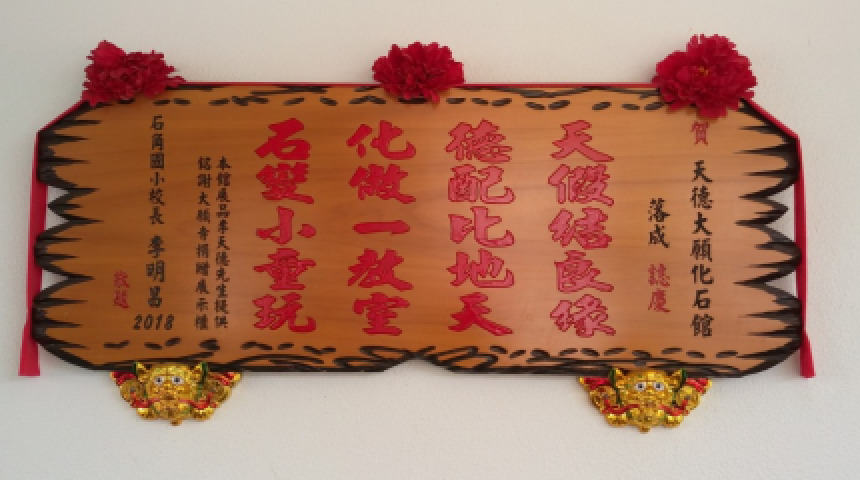 賀 天德大願化石館
落成 誌慶
天假結良緣
德配比地天
化做一教室
石變小童玩
本館展品李天德先生提供
銘謝大願寺捐贈展示櫃
石角國小校長 李明昌
2018
敬題